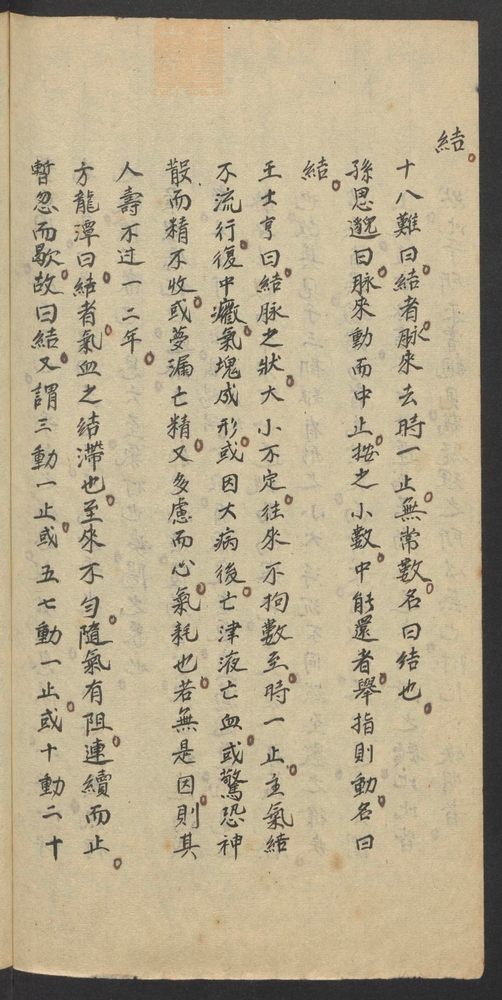 結
十八難曰結者脉來去時一止無常數名曰結也
孫思邈曰脉來動而中止按之小數中能還者舉指則動名曰
結
王士亨曰結脉之狀大小不定往來不拘數至時一止主氣結
不流行復中癥氣塊成形或因大病後亡津液亡血或驚恐神
散而精不收或夢漏亡精又多慮而心氣耗也若無是因則其
人壽不过一二年
方龍潭曰結者氣血之結滯也至來不勻隨氣有阻連續而止
暫忽而歇故曰結又謂三動一止或五七動一止或十動二十